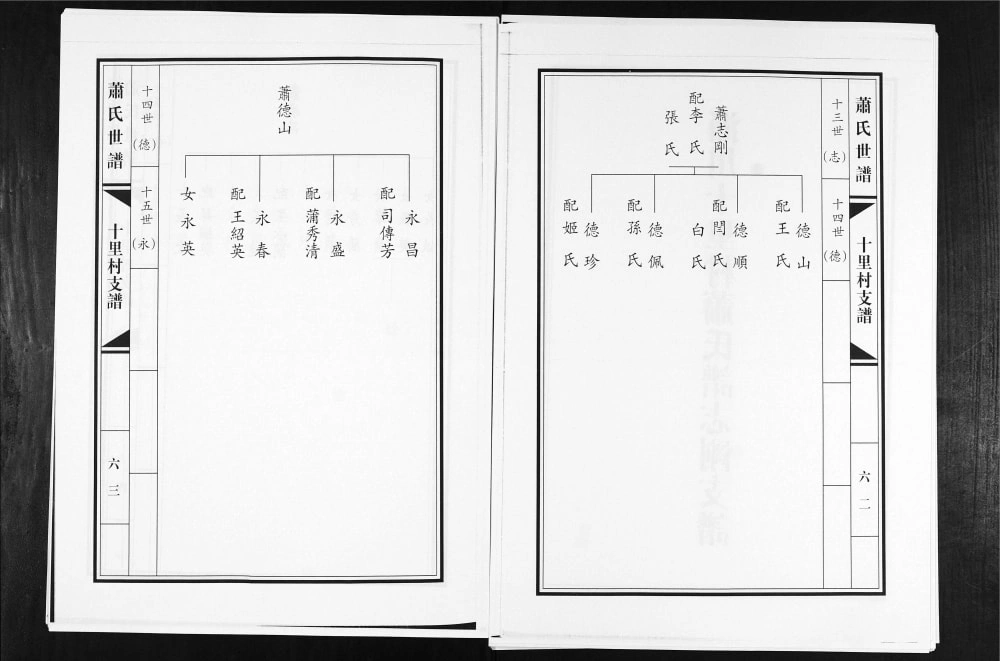 蕭氏世譜
十里村支譜
六二
十三世(志)
十四世(德)
蕭志剛
配李氏
張氏
德山
配王氏
德順
配閆氏
白氏
德佩
配孫氏
德珍
配姬氏
蕭氏世譜
十里村支譜
六三
十四世(德)
十五世(永)
蕭德山
永昌
配司傳芳
永盛
配蒲秀清
永春
配王紹英
女永英